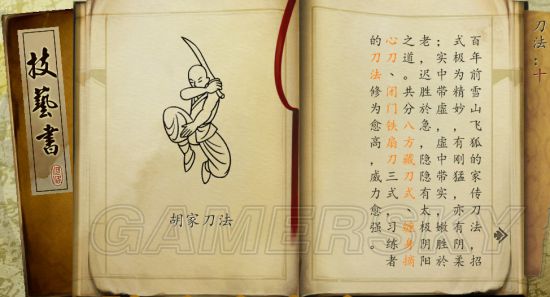 技藝書
胡家刀法
刀法：十
百年前雪山飞狐的家传刀法，招
式极为精妙，有刚猛，亦有阴柔
；实中带虚，虚中带实，嫩胜於
老，迟胜於急，隐隐有太极阴阳
之道。共分八方藏刀式、缠身摘
心刀、闭门铁扇刀三式，习练者
的刀法修为愈高，威力愈强。
GAMERSKY